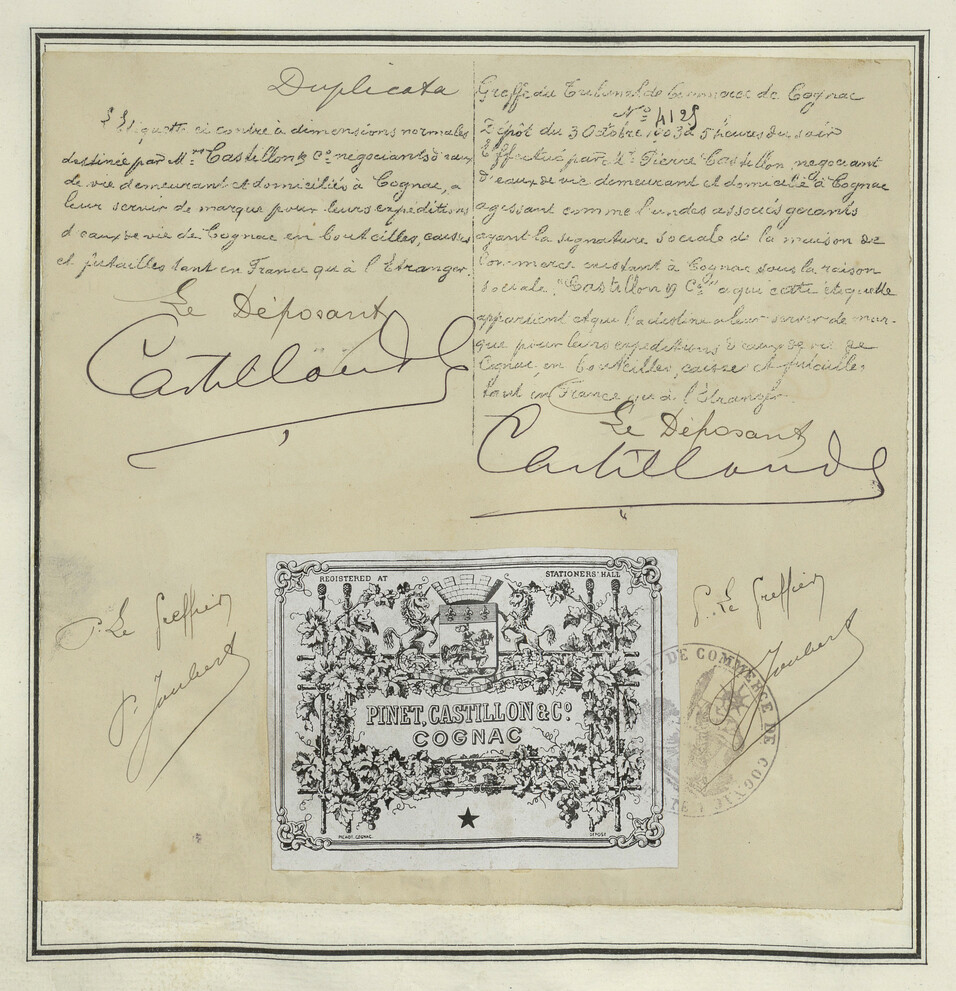 Duplicata
L'étiquette ci contre à dimensions normales
destinée par Mrs Castillon & Co negociants d'eaux
de vie demeurant et domiciliés à Cognac, a
leur servir de marque pour leurs expéditions
d'eaux de vie de Cognac en bouteilles, caisses
et futailles tant en France qu'à l'Etranger.
Le Déposant
Greffe du Tribunal de Commerce de Cognac
No 4125
Dépôt du 3 Octobre à 5 heures du soir
Effectué par Mr Pierre Castillon, negociant
d'eaux de vie demeurant et domicilié à Cognac
agissant comme l'un des associés gerants
ayant la signature sociale de la maison de
Commerce existant à Cognac sous la raison
sociale "Castillon & Co" a qui cette étiquette
appartient et qui l'a destine a leur servir de mar-
que pour leurs expéditions d'eaux de vie de
Cognac, en bouteilles, caisses et futailles
tant en France qu'à l'Etranger.
Le Déposant
P. Le Greffier
P. Joubert
P. Le Greffier
Joubert
REGISTERED AT STATIONERS' HALL
PINET, CASTILLON & Co.
COGNAC
COGNAC. DÉPOSÉ
DE COMMERCE DE COGNAC